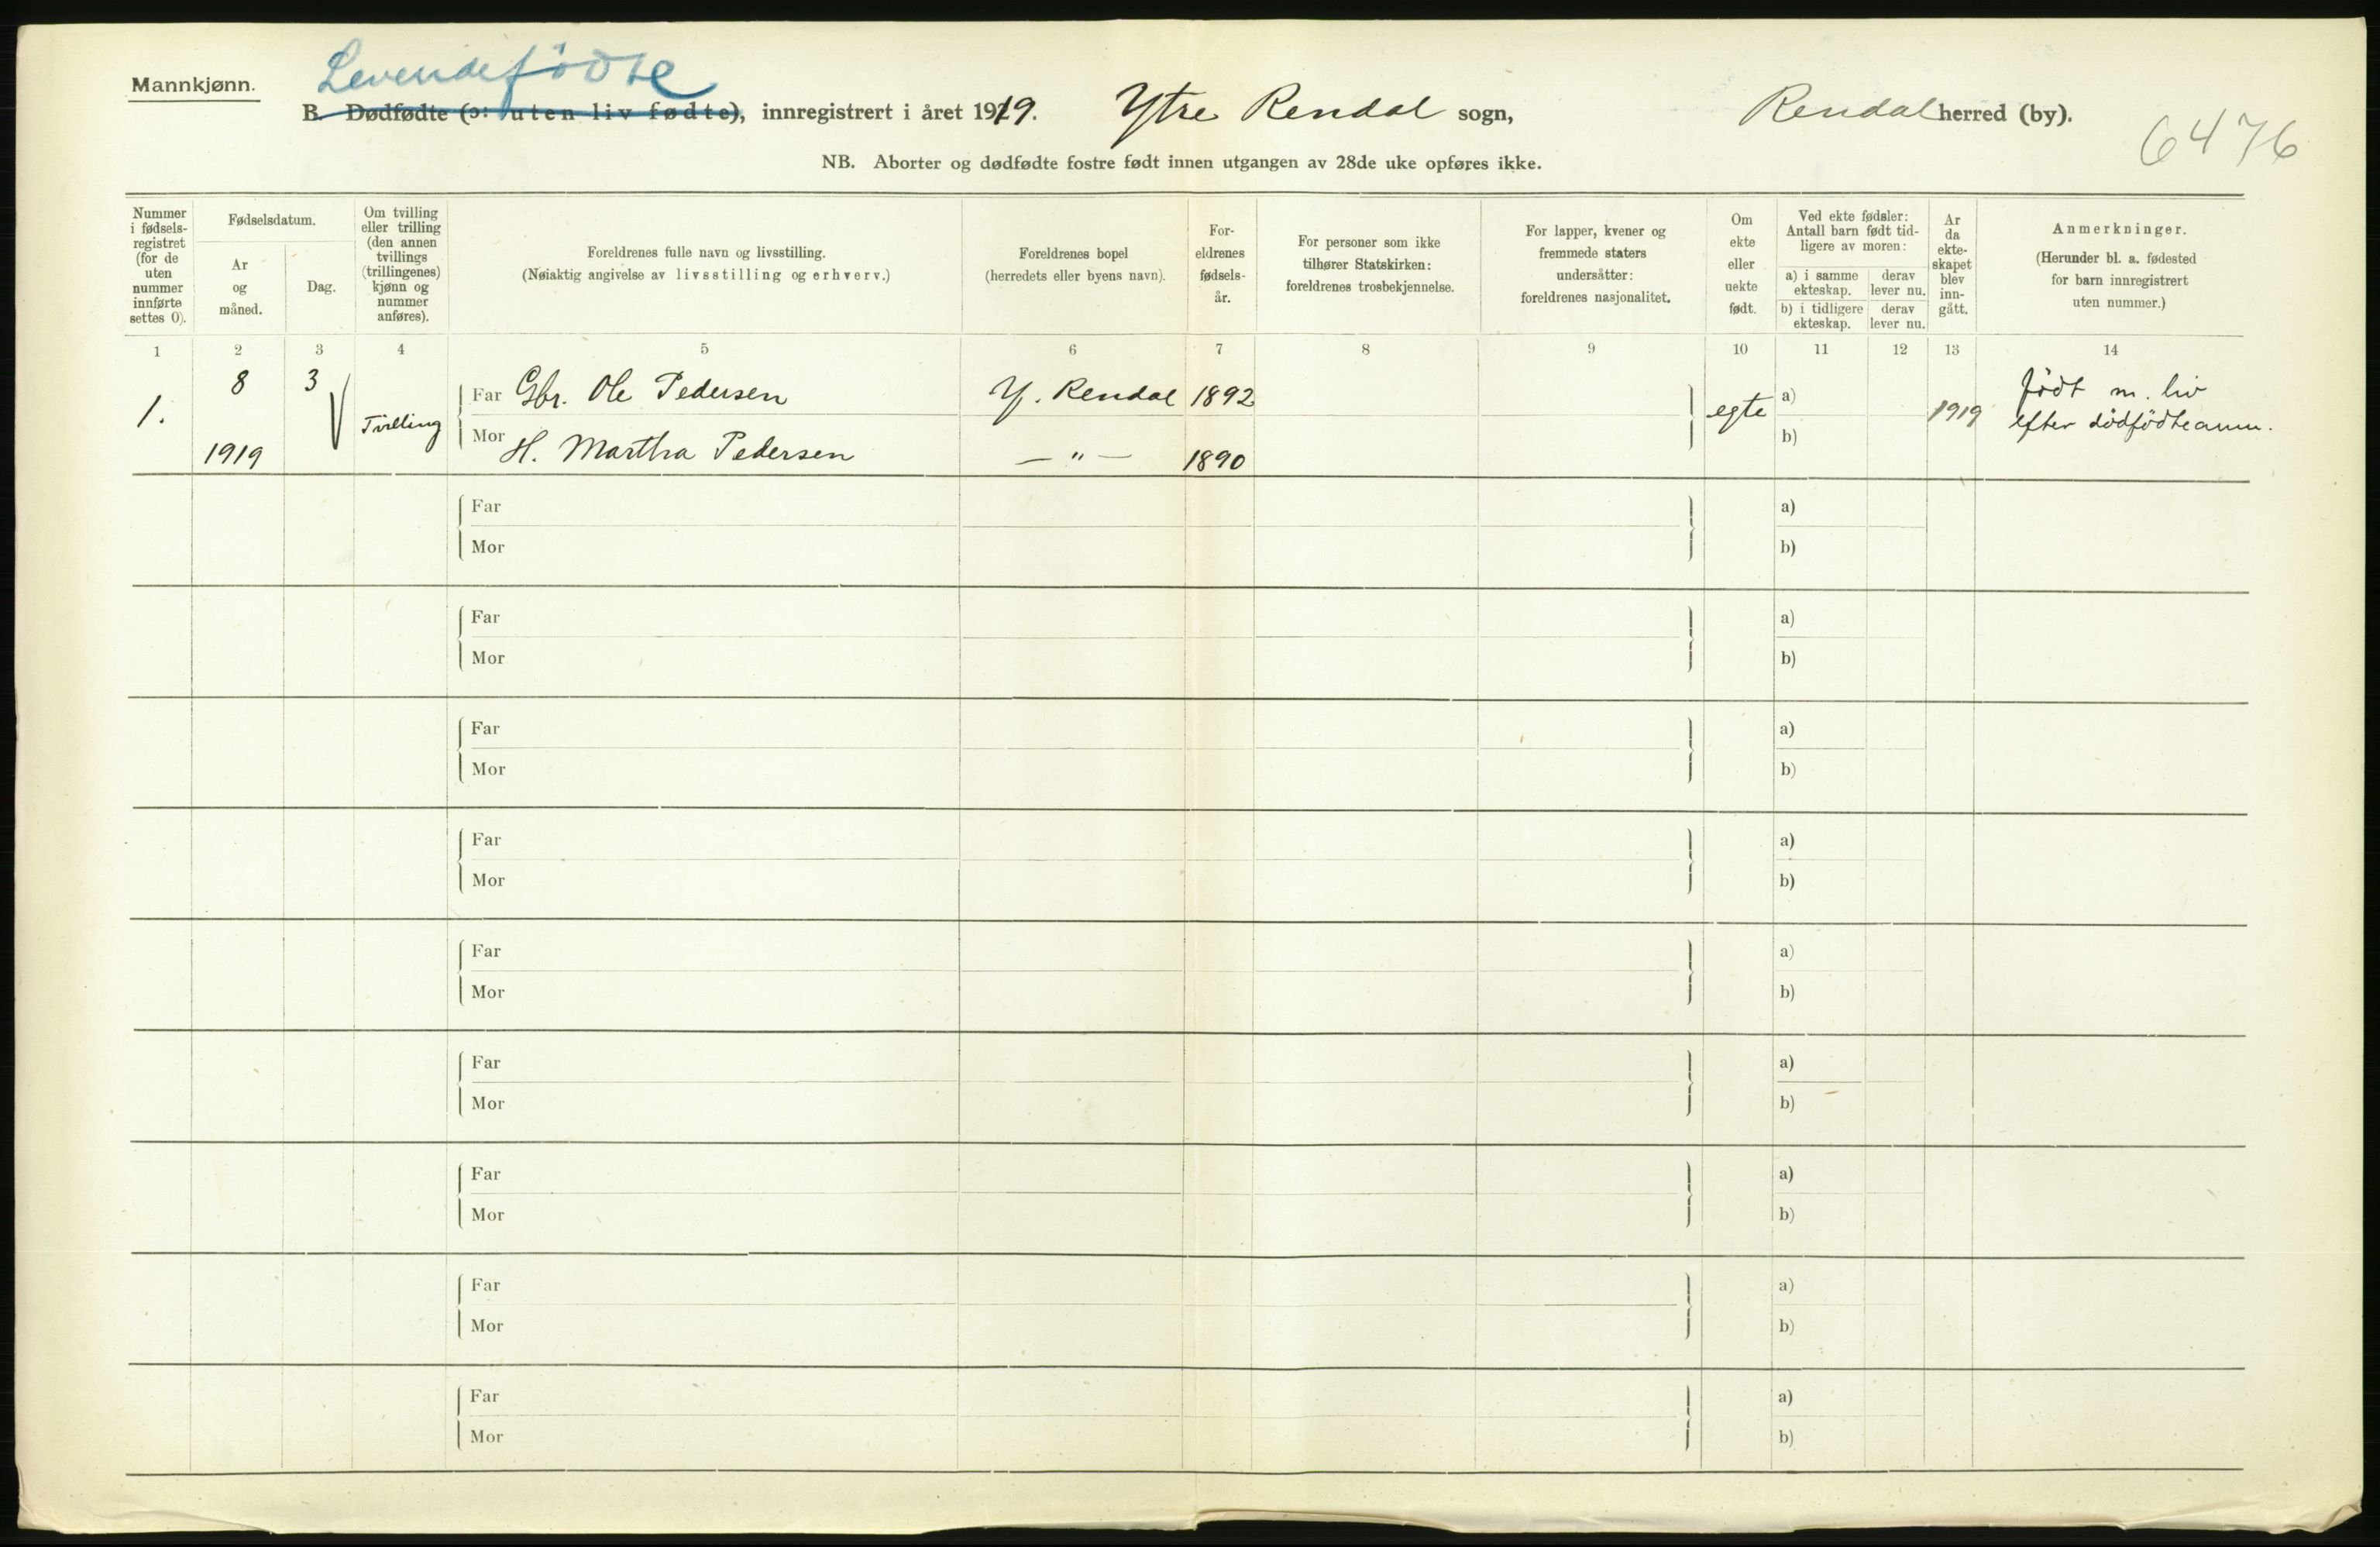 Mannkjønn.
Levendefödte
B. Dødfødte (ɔ: uten liv fødte), innregistrert i året 1919. Ytre Rendal sogn, Rendal herred (by).
6476
NB. Aborter og dødfødte fostre født innen utgangen av 28de uke opføres ikke.
Nummer i fødsels-registret (for de uten nummer innførte settes 0).
Fødselsdatum.
Ar og måned.
Dag.
Om tvilling eller trilling (den annen tvillings (trillingenes) kjønn og nummer anføres).
Foreldrenes fulle navn og livsstilling.
(Nøiaktig angivelse av livsstilling og erhverv.)
Foreldrenes bopel
(herredets eller byens navn).
For-eldrenes fødsels-år.
For personer som ikke tilhører Statskirken: foreldrenes trosbekjennelse.
For lapper, kvener og fremmede staters undersåtter: foreldrenes nasjonalitet.
Om ekte eller uekte født.
Ved ekte fødsler: Antall barn født tid-ligere av moren:
a) i samme ekteskap.
derav lever nu.
b) i tidligere ekteskap.
derav lever nu.
Ar da ekte-skapet blev inn-gått.
Anmerkninger.
(Herunder bl. a. fødested for barn innregistrert uten nummer.)
1 2 3 4 5 6 7 8 9 10 11 12 13 14
1. 8 3 Tvilling Far Gbr. Ole Pedersen Y. Rendal 1892 egte a) 1919 født m. liv
efter dødfödteanm.
1919 Mor H. Martha Pedersen — " — 1890 b)
Far a)
Mor b)
Far a)
Mor b)
Far a)
Mor b)
Far a)
Mor b)
Far a)
Mor b)
Far a)
Mor b)
Far a)
Mor b)
Far a)
Mor b)
Far a)
Mor b)